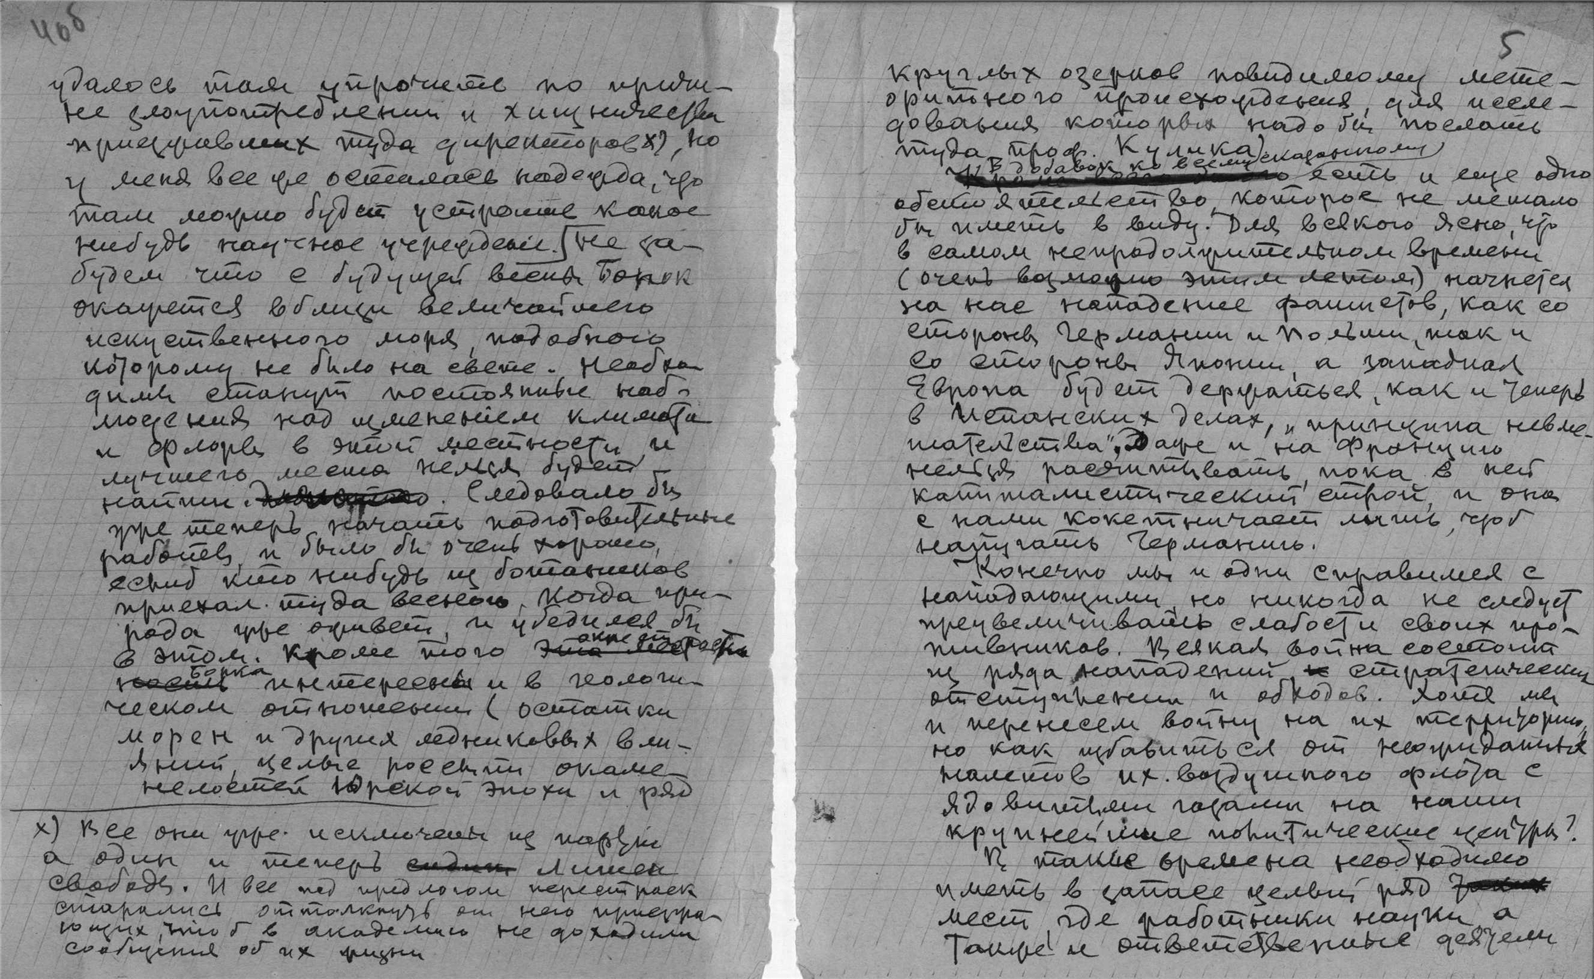 4об
удалось там упрочить по причи-
не злоупотреблений и хищничества
приезжавших туда директоров х), но
у меня все же осталась надежда, что
там можно будет устроить какое
нибудь научное учреждение. [Не за-
будем что с будущей весны Борок
окажется вблизи величайшего
искуственного моря, подобного
которому не было на свете. Необхо-
димы станут постоянные наб-
людения над изменением климата
и флоры в этой местности, и
лучшего места нельзя будет
найти. Следовало бы
уже теперь начать подготовительные
работы, и было бы очень хорошо,
еслиб кто нибудь из ботаников
приехал туда весною, когда при-
рода уже оживет, и убедился бы
в этом. Кроме того эта местность окрестности
Борка интересны и в геологи-
ческом отношении (остатки
морен и других ледниковых вли-
яний, целые россыпи окаме-
нелостей Юрской эпохи и ряд
х) Все они уже исключены из партии
а один и теперь сидит лишен
свободы. И все под предлогом перестроек
старались оттолкнуть от него приезжа-
ющих, чтоб в академию не доходили
сообщения об их жизни
5
круглых озерков повидимому мете-
оритного происхождения, для иссле-
дования которых надо бы послать
туда проф. Кулика)
В добавок ко всему сказанному
есть и еще одно
обстоятельство, которое не мешало
бы иметь в виду. Для всякого ясно, что
в самом непродолжительном времени
(очень возможно этим летом) начнется
на нас нападение фашистов, как со
стороны Германии и Польши, так и
со стороны Японии, а западная
Европа будет держаться, как и теперь
в Испанских делах, „принципа невме-
шательства". Даже и на Францию
нельзя расчитывать, пока в ней
капиталистический строй, и она
с нами кокетничает лишь, чтоб
напугать Германию.
Конечно мы и одни справимся с
нападающими, но никогда не следует
преувеличивать слабости своих про-
тивников. Всякая война состоит
из ряда нападений, стратегических
отступлений и обходов. Хотя мы
и перенесем войну на их территорию,
но как избавиться от неожиданных
налетов их воздушного флота с
ядовитыми газами на наши
крупнейшие политические центры?
В такие времена необходимо
иметь в запасе целый ряд
мест, где работники науки, а
также и ответственные деятели